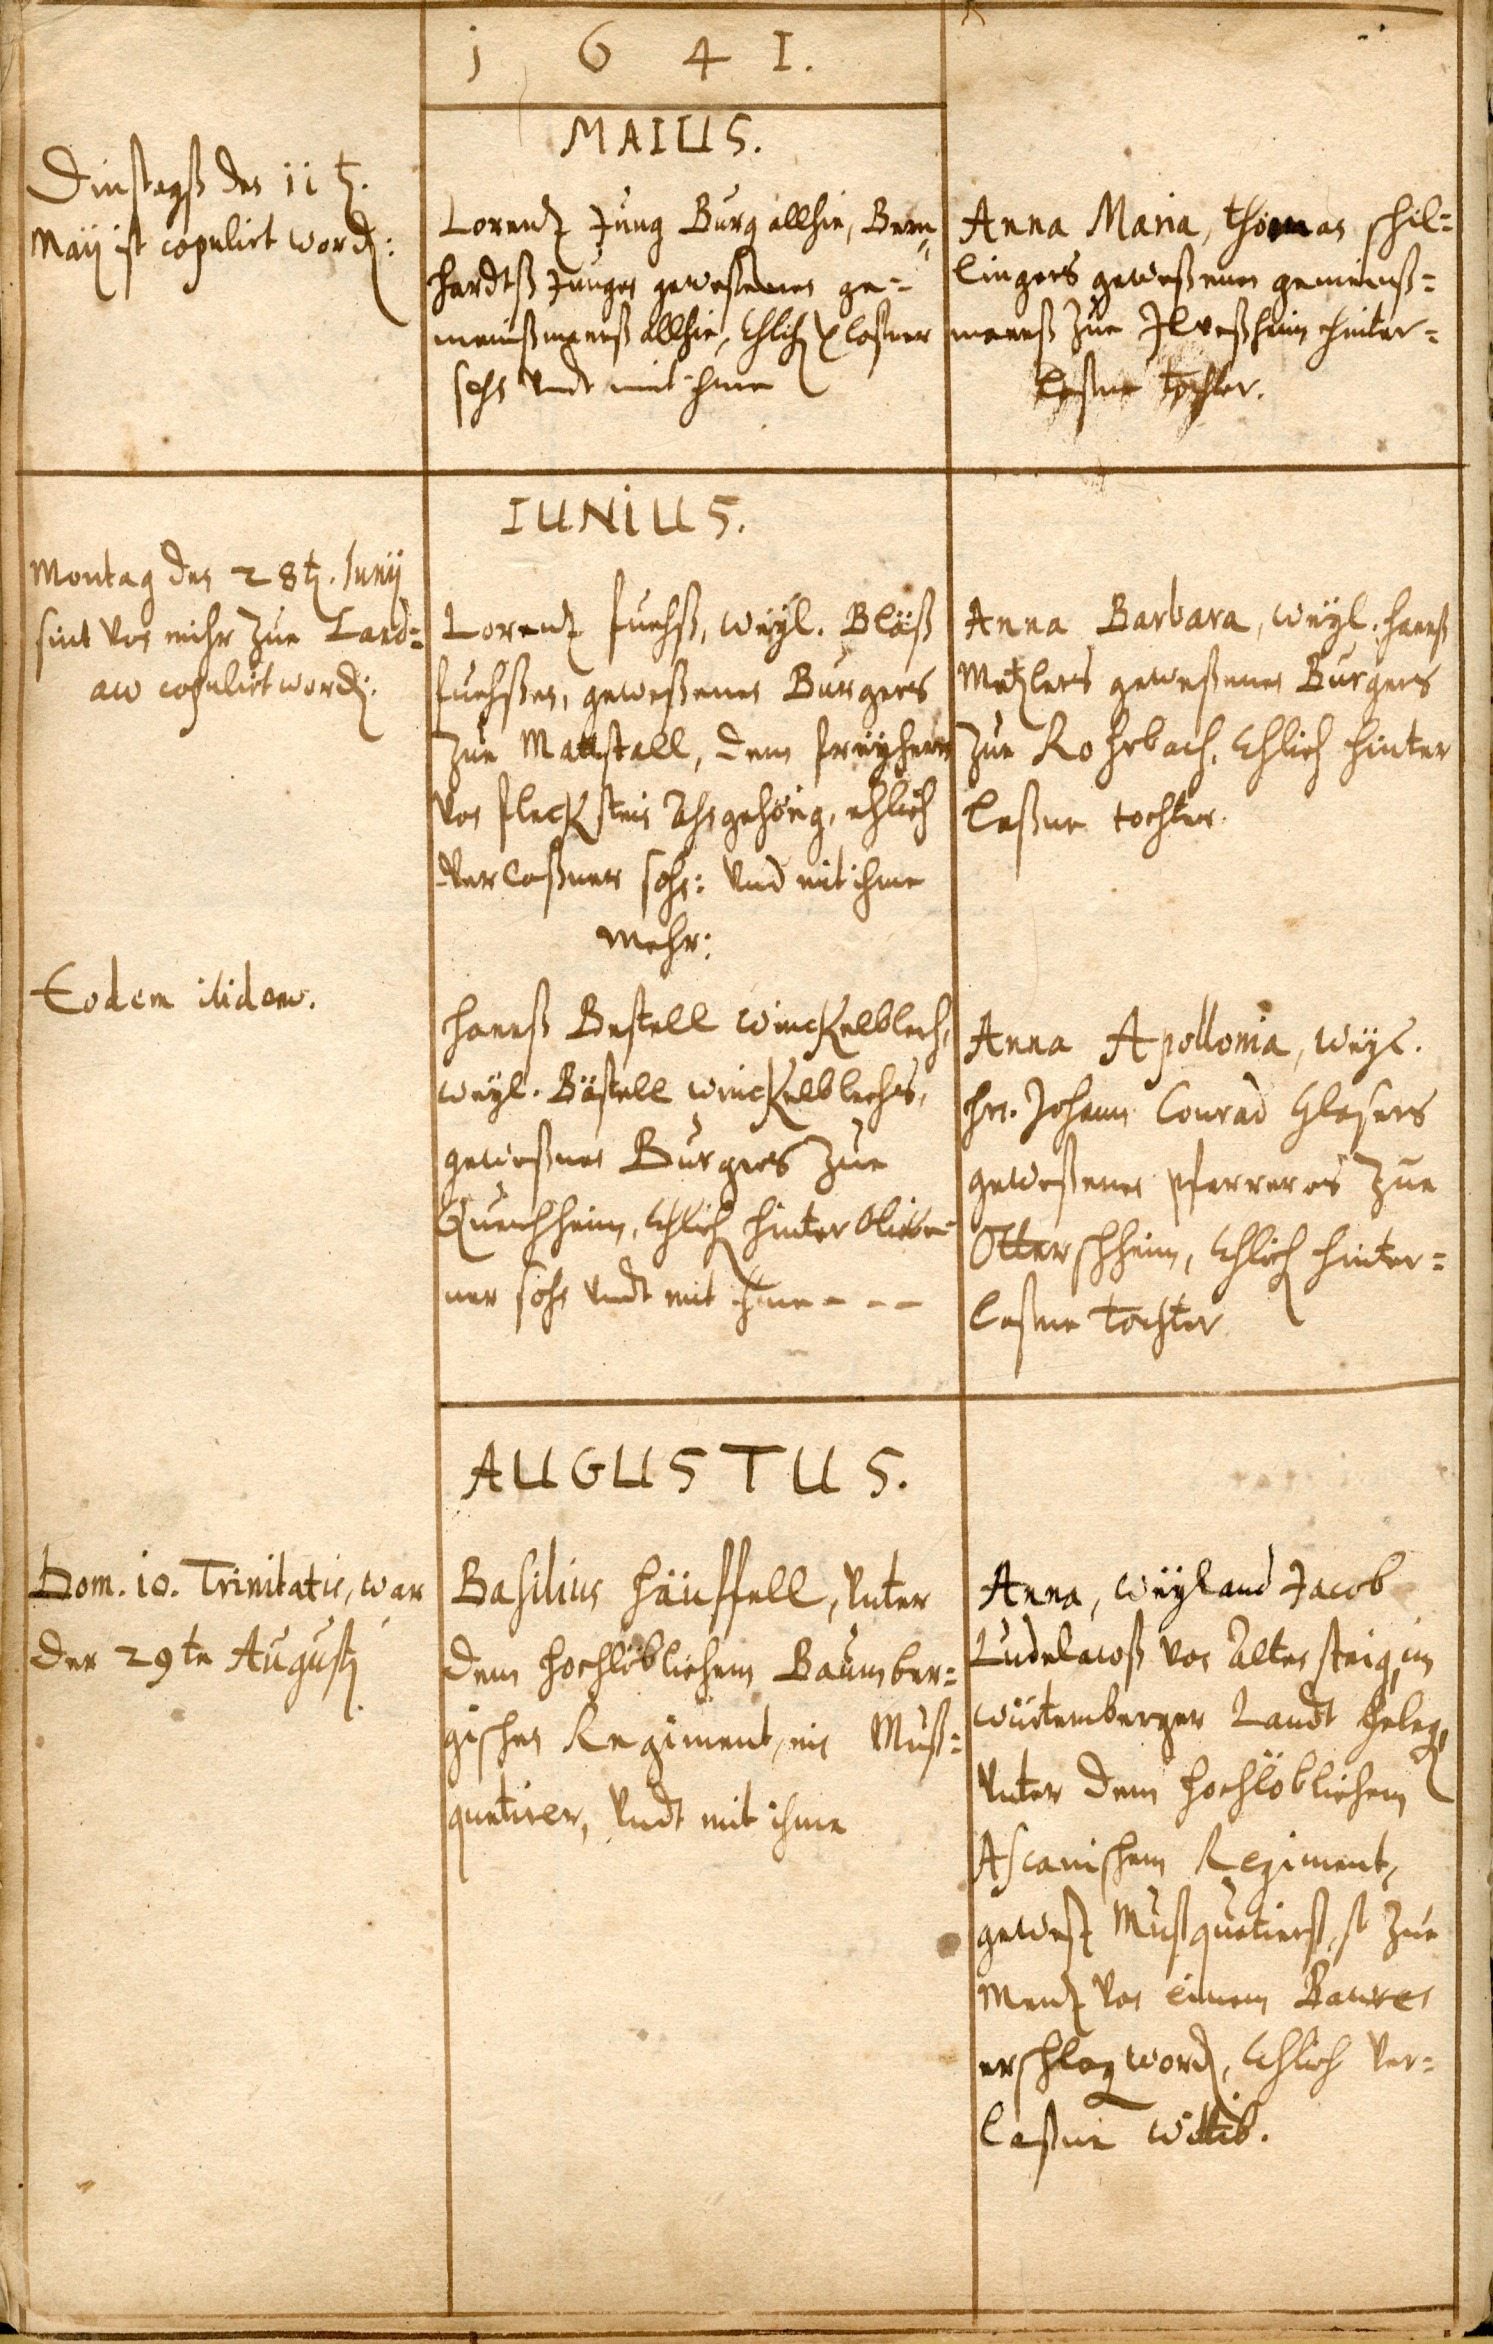 1641.
MAIUS.
Dinstagß den 11 t.
Maij ist copulirt word:
Lorentz Jung Burg allhie, Bern=
hardtß Jungen gewesenen ge=
meinßmanß allhie, Ehlich verlaßner
sohn undt mit ihme
Anna Maria, Thomas Schil=
lingers geweßenen gemeinß=
manß zue Ilveßheim hinter=
laßne tochter.
IUNIUS.
Montag den 28t. Junij
sint von mihr zue Land=
aw copulirt word:
Lorentz fuchß, weyl. Bläß
fuchßen, geweßenen Burgers
zue Mattstall, dem freyherrn
von fleckstein angehörig, ehlich
verlaßner sohn: Und mit ihme
Mehr:
Anna Barbara, weyl. hanß
Metzlers geweßenen Burgers
zue Rohrbach, Ehlich hinter
laßne tochter.
Eodem itidem.
hanß Bestell Winckelblech,
weyl. Bästell Winckelblechs,
geweßnen Burgers zue
Queichheim, Ehlich hinterblieb=
ner sohn undt mit ihme - - -
Anna Apollonia, weyl.
hrn. Johann Conrad Glasers
geweßenen pfarrers zue
Otterschheim, Ehlich hinter=
laßne Tochter
AUGUSTUS.
Dom. 10. Trinitatis, war
der 29te Augusti
Basilius Häuffell, Unter
dem hochlöblichem Baumber=
gischen Regiment, ein Muß=
quetirer, Undt mit ihme
Anna, weyland Jacob
von Altensteig, im
Würtemberger Landt
Unter dem hochlöblichem
Ascanischem Regiment,
gewest Mußquetierß, so zue
Mentz von einem Bauren
erschlag word, Ehlich ver=
laßne Wittib.